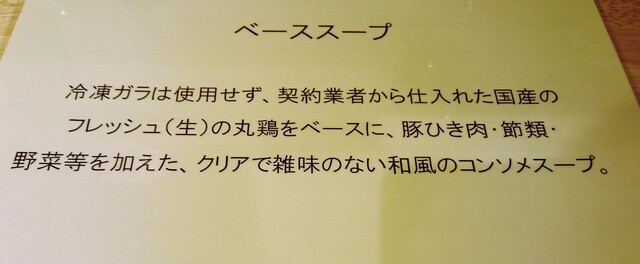 ベーススープ
冷凍ガラは使用せず、契約業者から仕入れた国産の
フレッシュ（生）の丸鶏をベースに、豚ひき肉・節類・
野菜等を加えた、クリアで雑味のない和風のコンソメスープ。